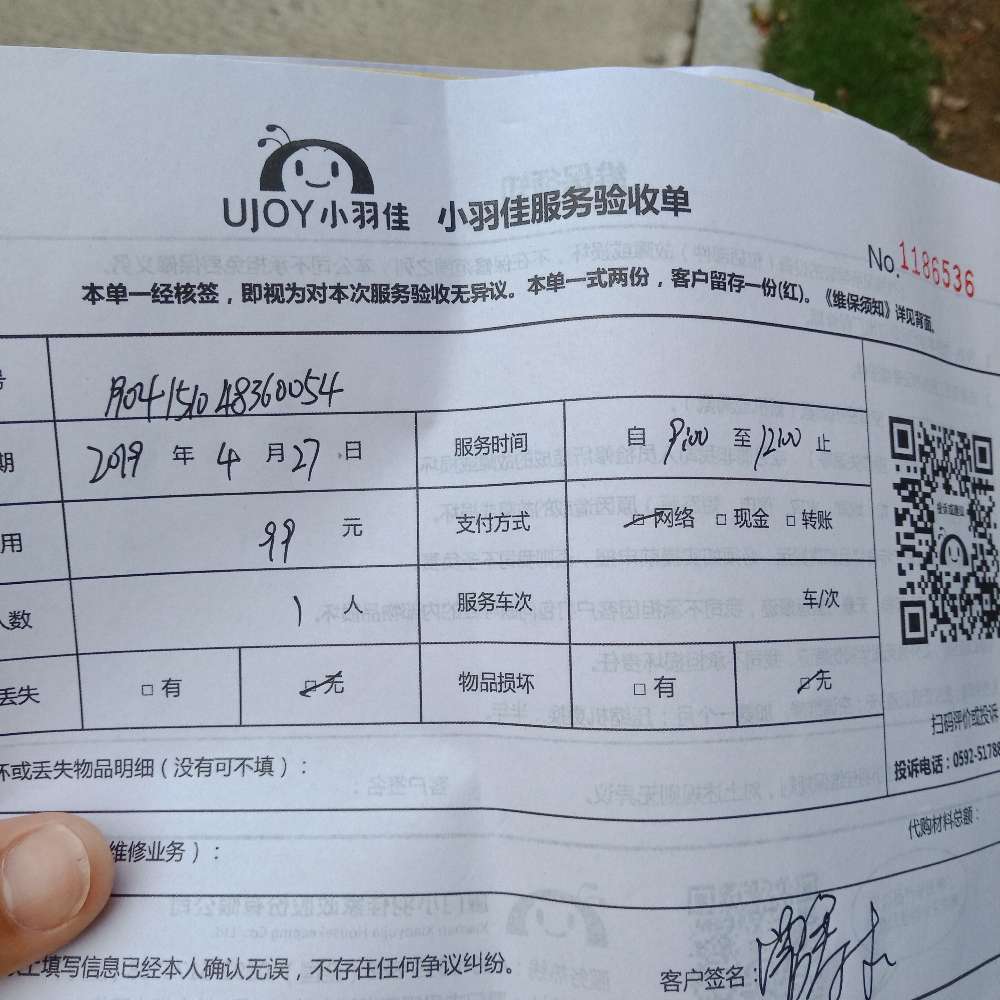 UJOY小羽佳 小羽佳服务验收单
No.1186536
本单一经核签，即视为对本次服务验收无异议。本单一式两份，客户留存一份(红)。《维保须知》详见背面。
号
期 2019 年 4 月 27 日 服务时间 自 9:00 至 12:00 止
用 99 元 支付方式 □ 网络 □ 现金 □ 转账
人数 1 人 服务车次 车/次
丢失 □ 有 □ 无 物品损坏 □ 有 □ 无
扫码评价或投诉
投诉电话：0592-51788
坏或丢失物品明细（没有可不填）：
代购材料总额：
维修业务）：
上填写信息已经本人确认无误，不存在任何争议纠纷。
客户签名：